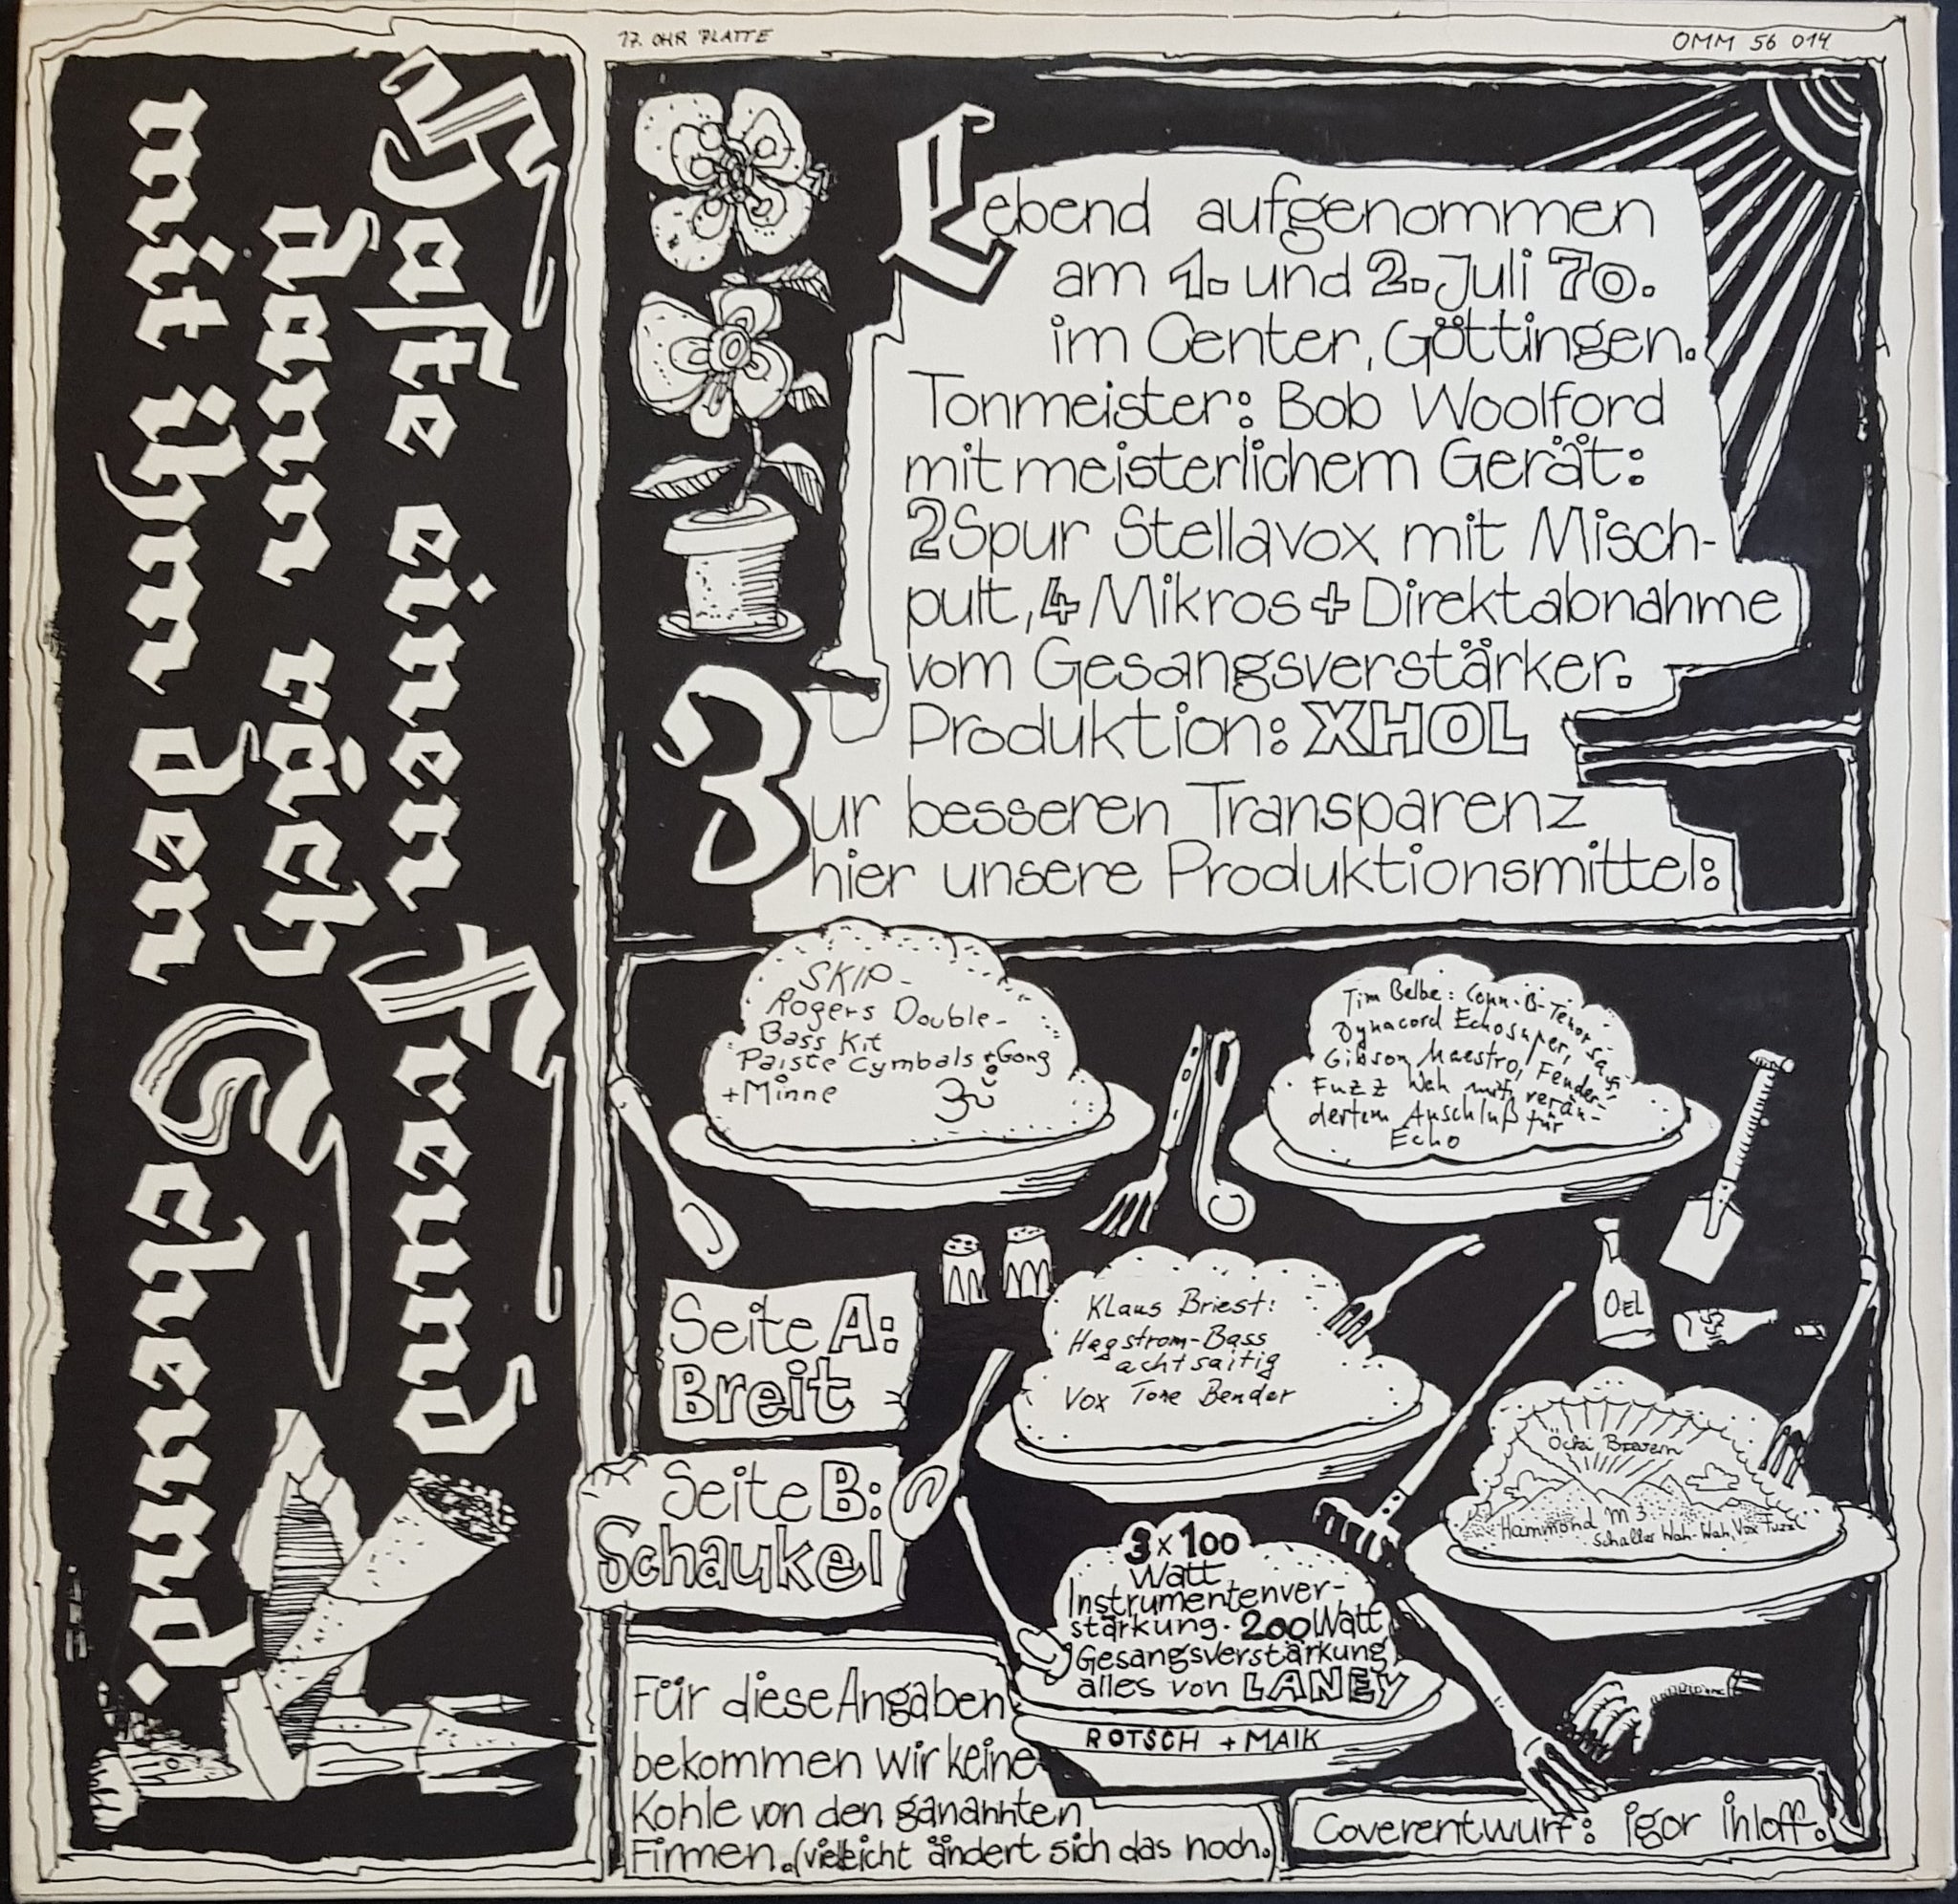 17. OHR PLATTE
OMM 56 014
Haste einen Freund
dann
mit ihm den
Lebend aufgenommen
am 1. und 2. Juli 70.
im Center, Göttingen.
Tonmeister: Bob Woolford
mit meisterlichem Gerät:
2 Spur Stellavox mit Misch-
pult, 4 Mikros + Direktabnahme
vom Gesangsverstärker.
Produktion: XHOL
Zur besseren Transparenz
hier unsere Produktionsmittel:
SKIP -
Rogers Double-
Bass Kit
Paiste Cymbals + Gong
+ Minne
Tim Belbe: Conn-B-Tenorsax
Dynacord Echosuper,
Gibson Maestro, Fender-
Fuzz Wah mit verän-
dertem Anschluß für
Echo
OEL
Klaus Briest:
Hagstrom-Bass
achtsaitig
Vox Tone Bender
Seite A:
Breit
Seite B:
Schaukel
Öcki Brevern
Hammond M 3
Schaller Wah-Wah, Vox Fuzz
3 x 100
Watt
Instrumentenver-
stärkung. 200 Watt
Gesangsverstärkung
alles von LANEY
ROTSCH + MAIK
Für diese Angaben
bekommen wir keine
Kohle von den ganannten
Firmen. (vielleicht ändert sich das noch.)
Coverentwurf: igor ihloff.